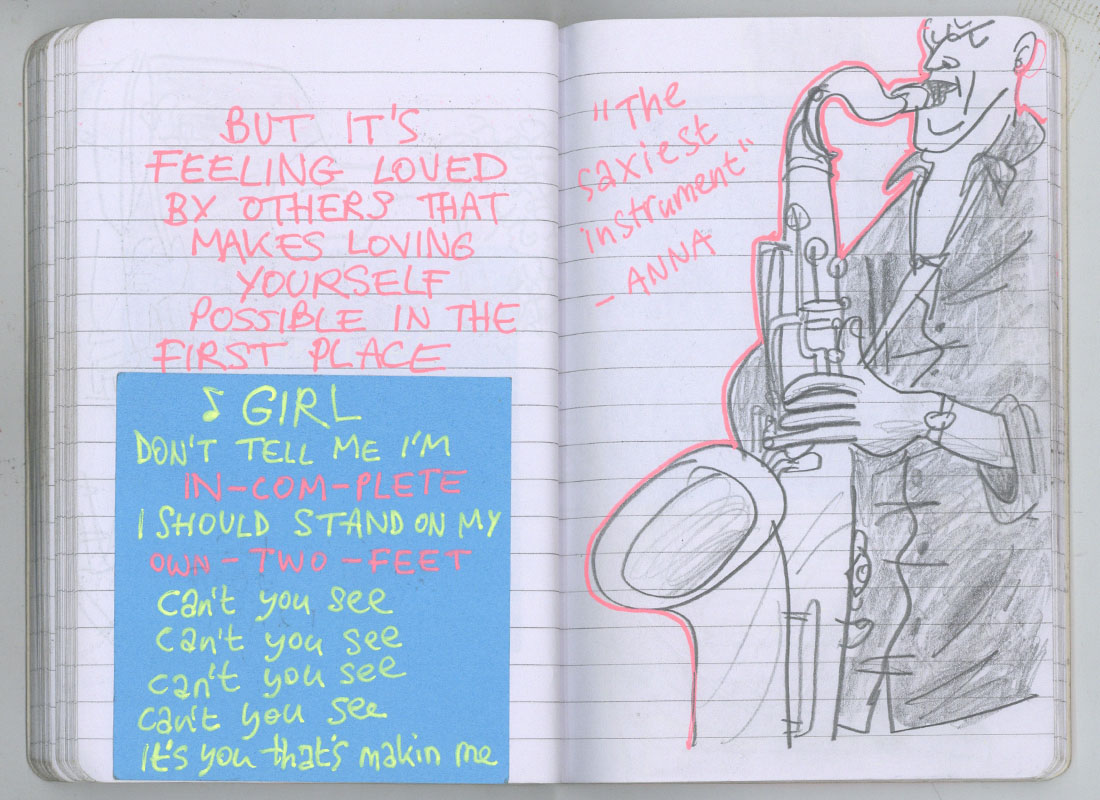 BUT IT'S
FEELING LOVED
BY OTHERS THAT
MAKES LOVING
YOURSELF
POSSIBLE IN THE
FIRST PLACE
♪ GIRL
DON'T TELL ME I'M
IN-COM-PLETE
I SHOULD STAND ON MY
OWN-TWO-FEET
can't you see
can't you see
can't you see
can't you see
it's you that's makin me
"The
saxiest
instrument"
- ANNA